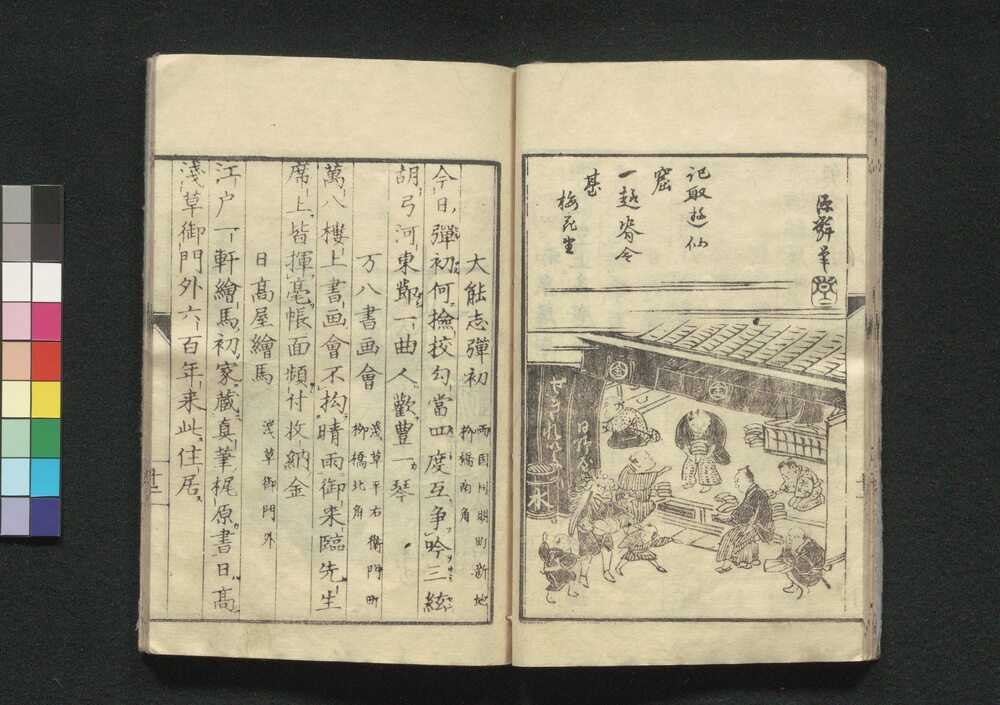 記取遊仙
窟
一越
甚
梅花坐
日野屋
水
大能志彈初
兩国川岫町新地
柳橋南角
今日彈初何撿挍勾當四度互争吟三絃
胡弓河東節一曲人歡豊一琴
万八書画會
浅草平右衛門町
柳橋北角
萬八樓上書画會不拘晴雨御来臨先生
席上皆揮毫帳面頻付收納金
日高屋繪馬
淺草御門外
江户一軒繪馬初家蔵真筆梶原書日高
淺草御門外六百年来此住居
廿二